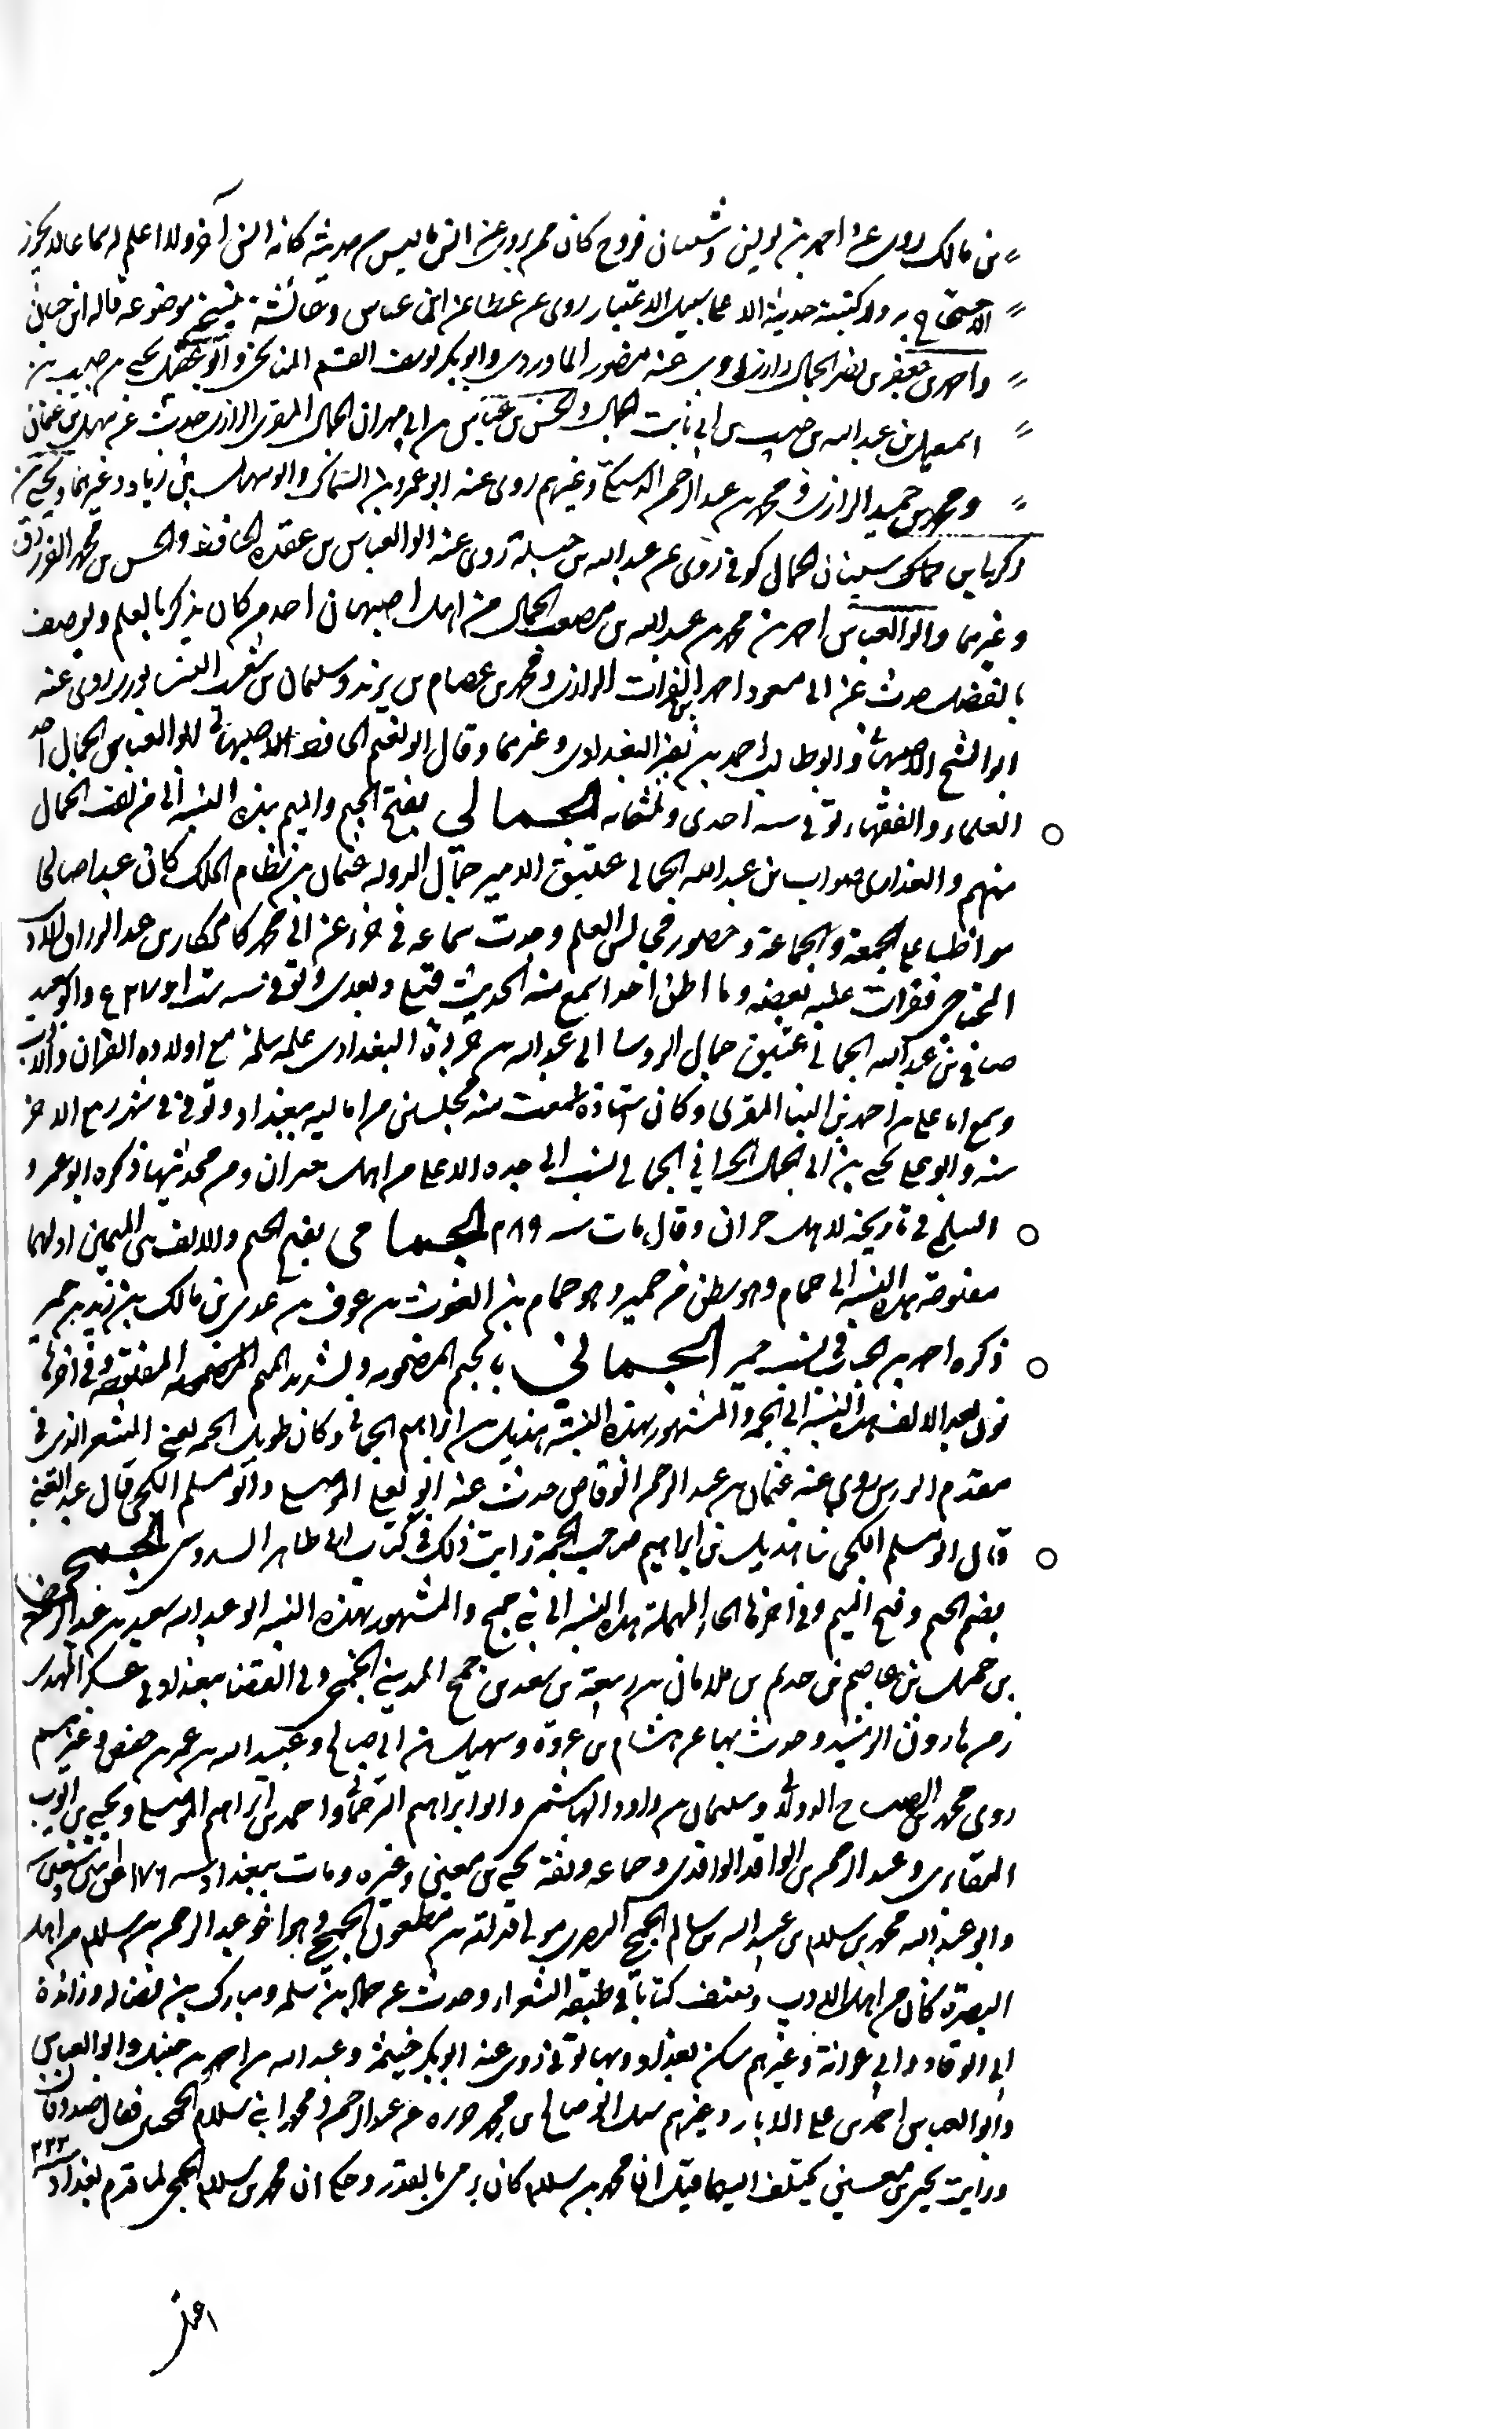 بن مالك روى عنه احمد بن لوين وشيبان فروخ كان ممن يروى عن انس ما ليس من حديثه كانه انس آخر ولا اعلم له سماعا لا يجوز
الاحتجاج به ولا كتبة حديثه الا على سبيل الاعتبار روى عن عطا عن ابن عباس وعائشة بنسخة موضوعة قاله ابن حبان
واحمد بن جعفر بن نصر الجمال رازى روى عنه منصور الماوردى وابو بكر يوسف القسم الميانجى وابو الفضل يحيى بن حبيب بن
اسمعيل بن عبد الله بن حبيب بن ابى ثابت الجمال والحسن بن عباس بن ابى مهران الجمال المقرى الرازى حدث عن سهل بن عثمان
ومحمد بن حميد الرازى ومحمد بن عبد الرحمن وغيرهم روى عنه ابو عمرو بن السماك وابو سهل بن زياد وغيرهما ويحيى بن
زكريا بن سليمان الجمال كوفى روى عن عبد الله بن جبلة روى عنه ابو العباس بن عقدة الحافظ والحسن بن محمد
وغيرهما وابو العباس احمد بن محمد بن عبد الله بن مصعب الجمال من اهل اصبهان احد من كان يذكر بالعلم ويوصف
بالفضل حدث عن ابى مسعود احمد بن الفرات الرازى ومحمد بن عصام بن يزيد وسليمان بن شعيب روى عنه
ابو الشيخ الاصبهانى وابو طالب احمد بن نصر البغدادى وغيرهما وقال ابو نعيم الحافظ الاصبهانى ابو العباس الجمال احد
العلماء والفقهاء توفى سنة احدى وثلثمائة الجمالى بفتح الجيم والميم هذه النسبة الى من لقب الجمال
منهم صواب بن عبد الله الجمالى عتيق الامير جمال الدولة عثمان بن نظام الملك كان عبدا صالحا
مواظبا على الجمعة والجماعة وحضور مجالس العلم وحدث سماعه فى جزء عن ابى محمد كامكار بن عبد الرزاق
فقرات عليه بعضه وما اظن احدا سمع منه الحديث قبلى وبعدى وتوفى سنة وابو سعيد
صافى بن عبد الله الجمالى عتيق جمال الروسا ابى عبد الله بن جردة البغدادى علمه مع اولاده القران والادب
وسمع ابا على بن احمد بن البنا المقرى وكان استاذه سمعت منه مجلسين من اماليه ببغداد وتوفى فى شهر ربيع الاخر
سنة وابو على يحيى بن ابى الجمال الحرانى الجمالى نسب الى جده الاعلى من اهل حران ومن محدثيها ذكره ابو عمر و
السلمى فى تاريخه لاهل حران وقال مات سنة الجمامى بضم الجيم والالف بين الميمين اولهما
مفتوحة هذه النسبة الى جمام وهو بطن من حمير وهو جمام بن الغوث بن عوف بن عدى بن مالك بن زيد بن حمير
ذكره احمد بن الحباب فى نسب حمير الجمانى بالجيم المضمومة وتشديد الميم المفتوحة وفى اخرها
نون بعد الالف هذه النسبة الى الجمة والمشهور بهذه النسبة هذيل بن ابراهيم الجمانى وكان طويل الجمة يعنى الشعر الذى فى
مقدم الراس يروى عنه عثمان بن عبد الرحمن الوقاصى حدث عنه ابو يعلى الموصلى وابو مسلم الكجى قال عبد الغنى
قال ابو مسلم الكجى نا هذيل بن ابراهيم صاحب الجمة رايت ذلك فى كتاب ابى طاهر السدوسى الجمحى
بضم الجيم وفتح الميم وفى اخرها الحاء المهملة هذه النسبة الى بنى جمح والمشهور بهذه النسبة ابو عبد الله سعيد بن عبد الرحمن
بن جميل بن عامر بن حديم بن سلامان بن ربيعة بن سعد بن جمح المدينى الجمحى ولى القضا ببغداد فى عسكر المهدى
زمن هارون الرشيد وحدث بها عن هشام بن عروة وسهيل بن ابى صالح وعبيد الله بن عمر بن حفص وغيرهم
روى محمد بن الصباح الدولابى وسليمان بن داود الهاشمى وابو ابراهيم الترجمانى واحمد بن ابراهيم الموصلى ويحيى بن ايوب
المقابرى وعبد الرحمن بن الواقد الواقدى وجماعه وثقه يحيى بن معين وغيره ومات ببغداد سنة ١٧٦
وابو عبد الله محمد بن سلام بن عبيد الله بن سالم الجمحى البصرى مولى قدامة بن مظعون الجمحى وهو اخو عبد الرحمن بن سلام من اهل
البصرة كان من اهل الادب وصنف كتابا فى طبقة الشعراء وحدث عن حماد بن سلمة ومبارك بن فضالة وزائدة
ابى الوقاد وابى عوانة وغيرهم سكن بغداد وبها توفى روى عنه ابو بكر خيثمة وعبد الله بن احمد بن حنبل وابو العباس
وابو العباس احمد بن على الابار وغيرهم سئل ابو صالح بن محمد جزره عن عبد الرحمن ومحمد ابنى سلام الجمحى فقال صدوقان
ورايت يحيى بن معين يختلف اليهما قيل ان محمد بن سلام كان يرمى بالقدر وحكى ان محمد بن سلام الجمحى لما قدم بغداد سنة ٢٢٢